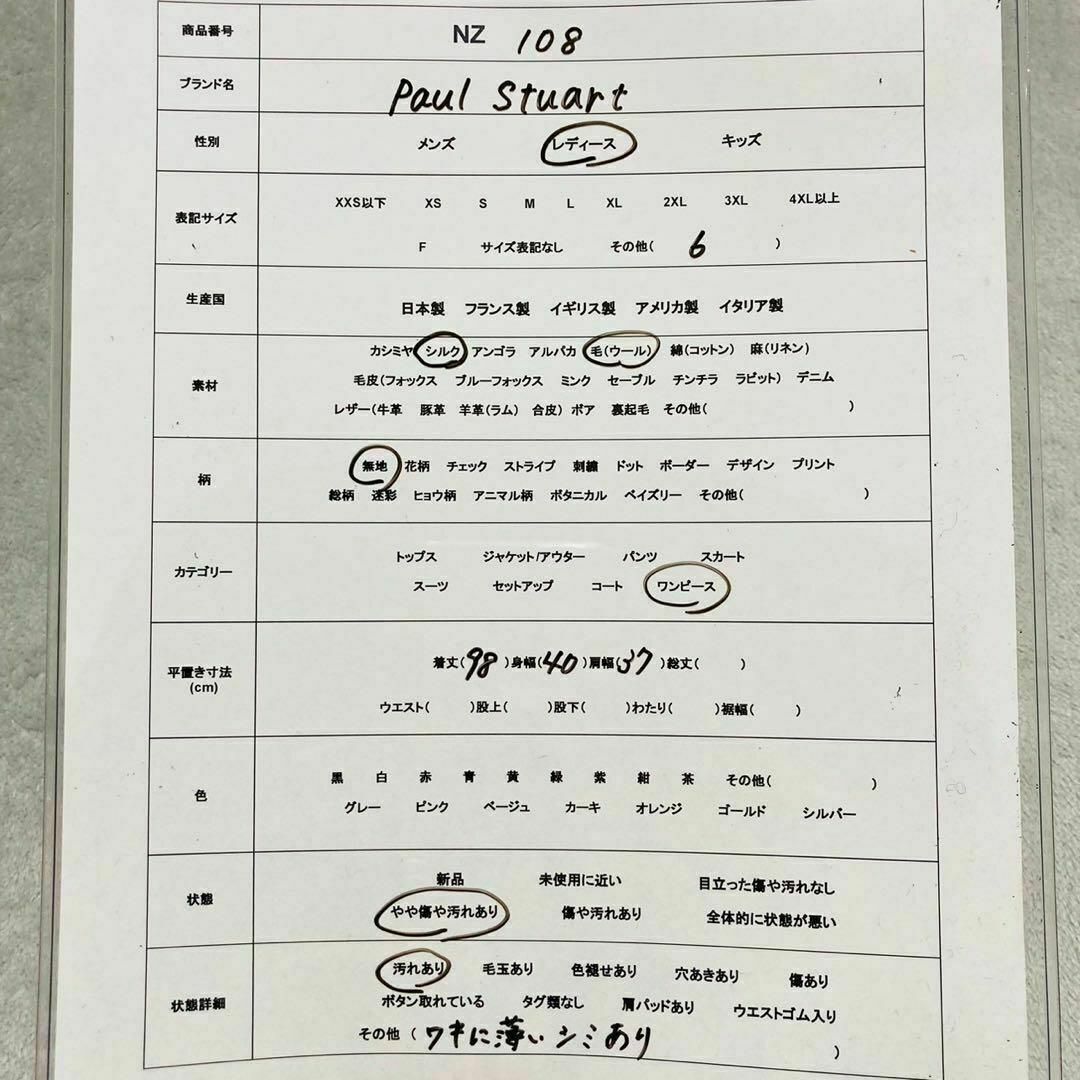 商品番号 NZ 108
ブランド名 Paul Stuart
性別 メンズ レディース キッズ
表記サイズ XXS以下 XS S M L XL 2XL 3XL 4XL以上
F サイズ表記なし その他( 6 )
生産国 日本製 フランス製 イギリス製 アメリカ製 イタリア製
素材 カシミヤ シルク アンゴラ アルパカ 毛(ウール) 綿(コットン) 麻(リネン)
毛皮(フォックス ブルーフォックス ミンク セーブル チンチラ ラビット) デニム
レザー(牛革 豚革 羊革(ラム) 合皮) ボア 裏起毛 その他( )
柄 無地 花柄 チェック ストライプ 刺繍 ドット ボーダー デザイン プリント
総柄 迷彩 ヒョウ柄 アニマル柄 ボタニカル ペイズリー その他( )
カテゴリー トップス ジャケット/アウター パンツ スカート
スーツ セットアップ コート ワンピース
平置き寸法 (cm) 着丈( 98 )身幅( 40 )肩幅( 37 )総丈( )
ウエスト( )股上( )股下( )わたり( )裾幅( )
色 黒 白 赤 青 黄 緑 紫 紺 茶 その他( )
グレー ピンク ベージュ カーキ オレンジ ゴールド シルバー
状態 新品 未使用に近い 目立った傷や汚れなし
やや傷や汚れあり 傷や汚れあり 全体的に状態が悪い
状態詳細 汚れあり 毛玉あり 色褪せあり 穴あきあり 傷あり
ボタン取れている タグ類なし 肩パッドあり ウエストゴム入り
その他 ( ワキに薄いシミあり )